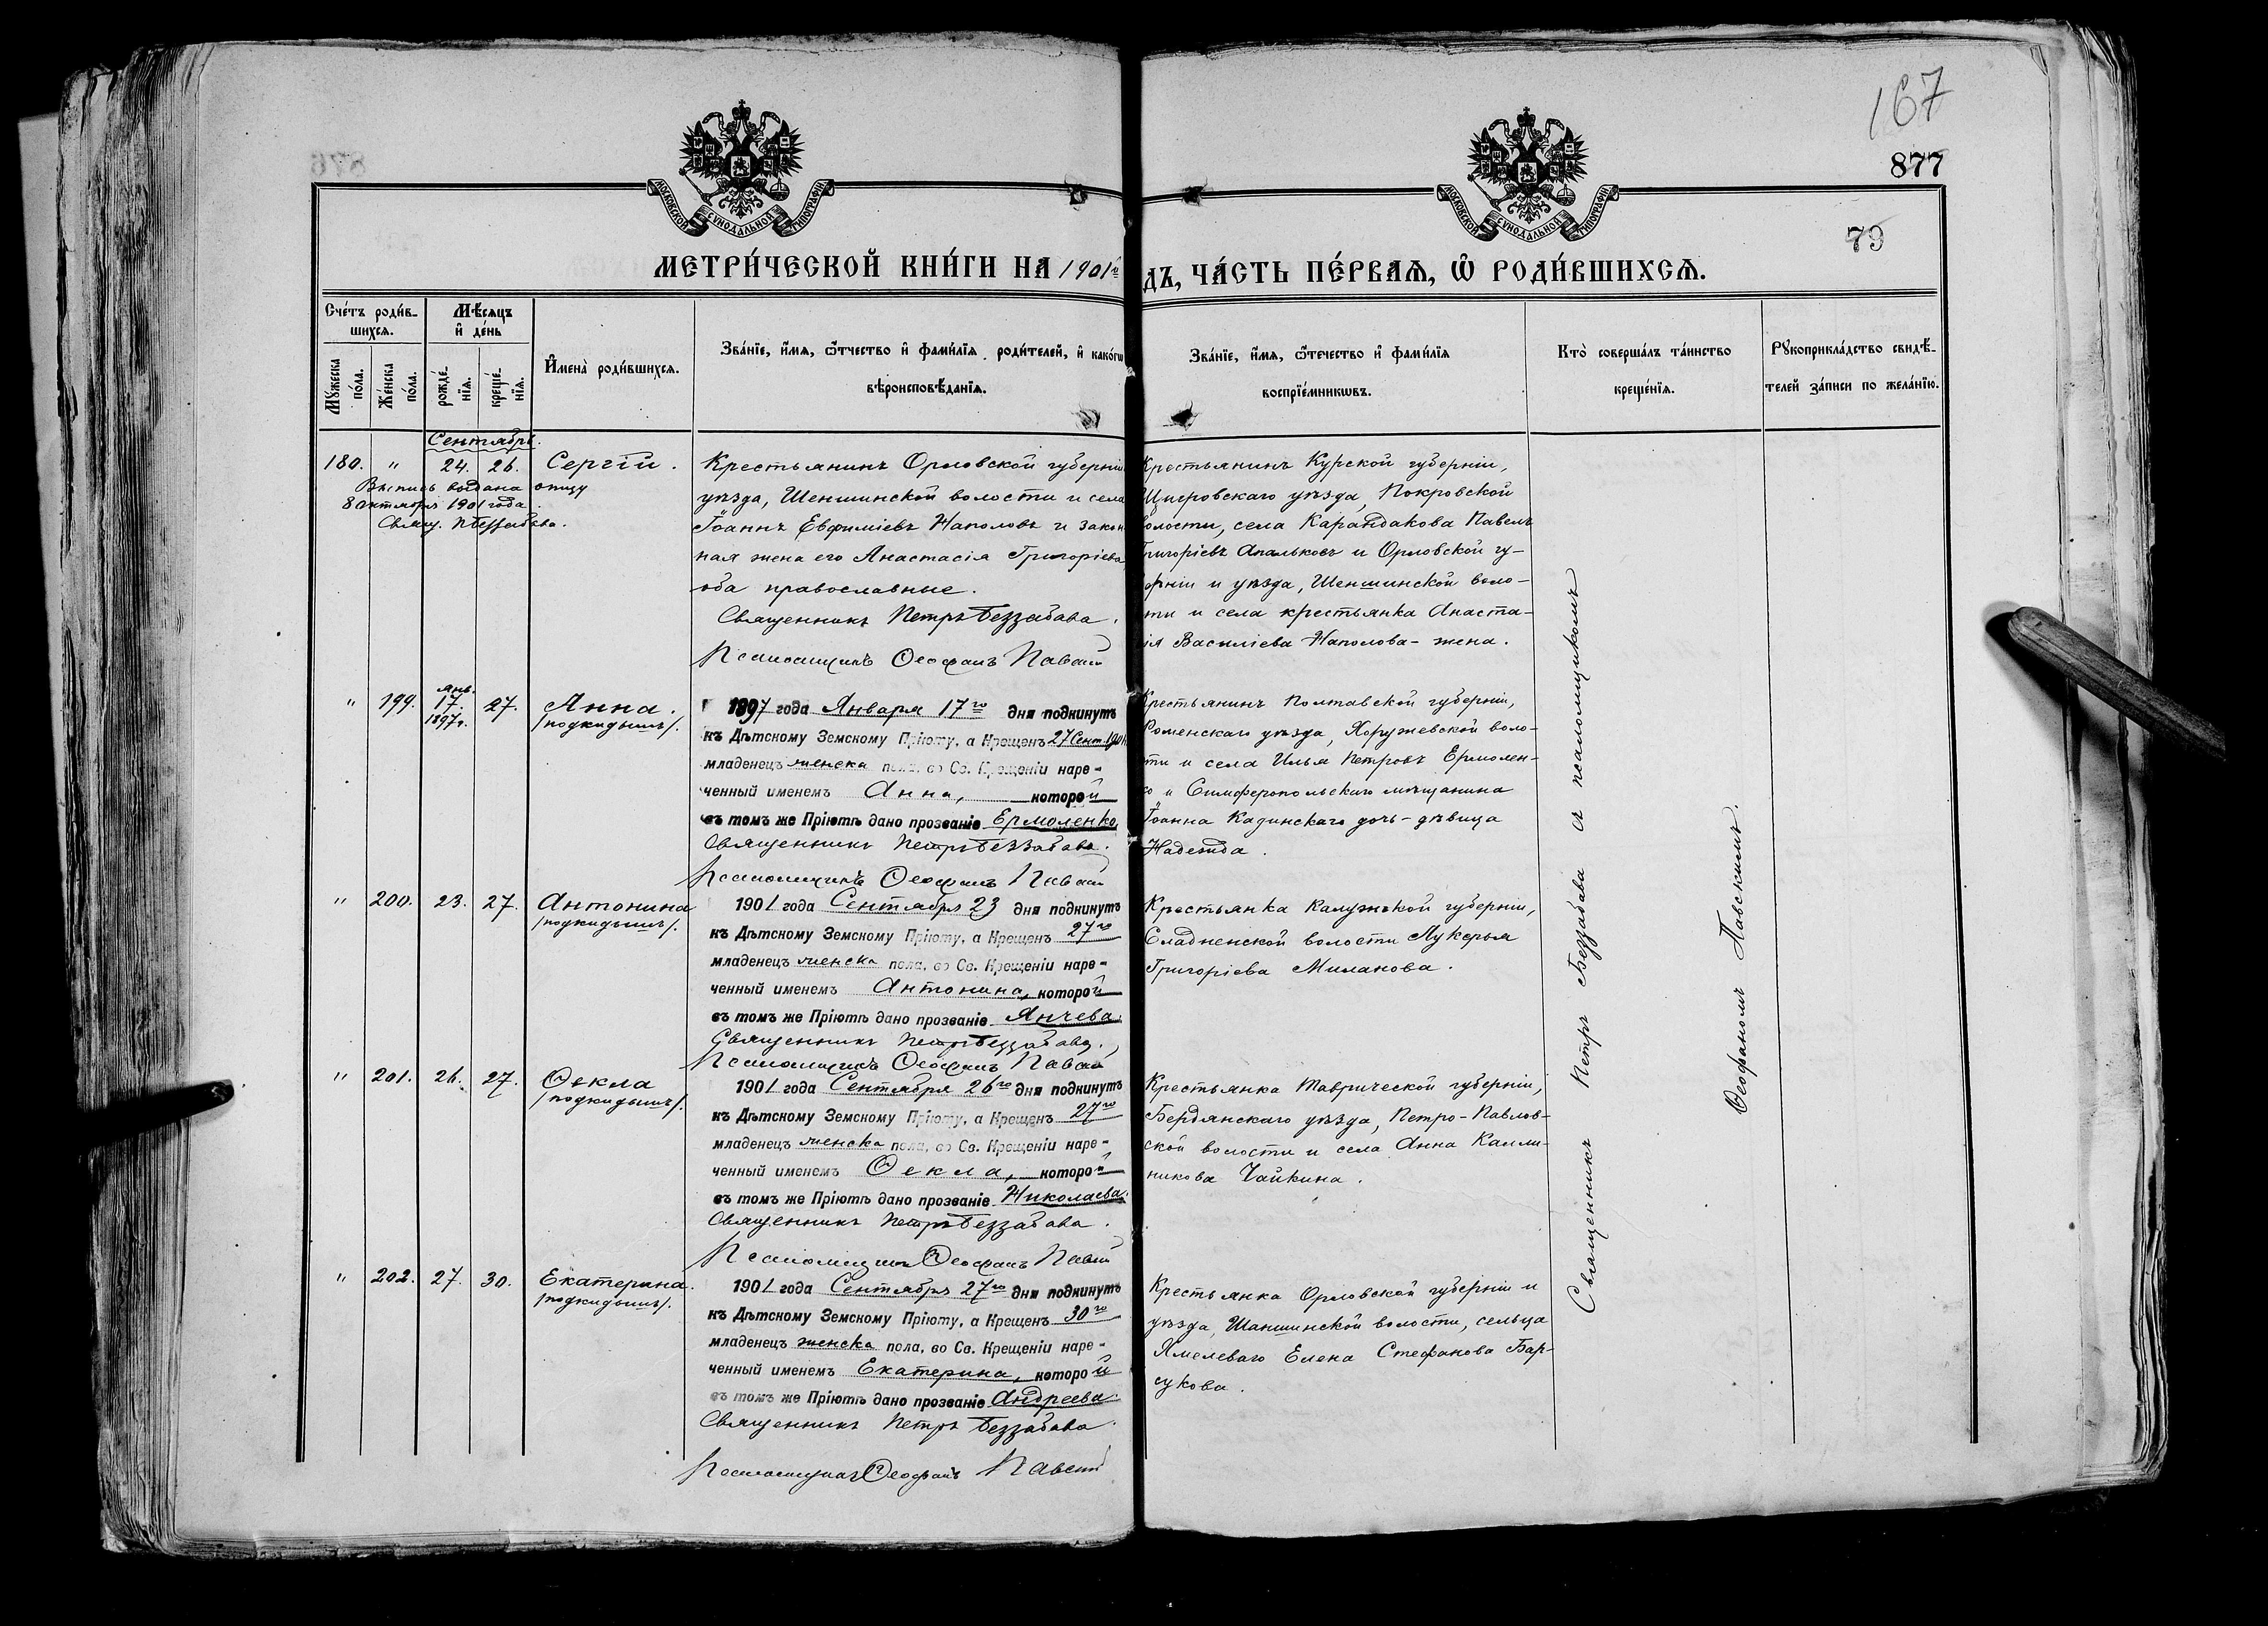 167
877
79
МОСКОВСКОЙ СѴНОДАЛЬНОЙ ТИПОГРАФІИ
МОСКОВСКОЙ СѴНОДАЛЬНОЙ ТИПОГРАФІИ
МЕТРИ́ЧЕСКОЙ КНИ́ГИ НА 1901 го
ДЪ, ЧА́СТЬ ПЕ́РВАѦ, Ѡ҆ РОДИ́ВШИХСѦ.
Сче́тъ роди́в-
шихсѧ.
Мꙋ́жеска по́ла.
Же́нска по́ла.
Мѣ́сѧцъ
и҆ де́нь
рожде́-нїѧ.
креще́-нїѧ.
И҆мена̀ роди́вшихсѧ.
Зва́нїе, и҆́мѧ, ѻ҆́тчество и҆ фами́лїѧ роди́телей, и҆ како́гѡ
вѣроисповѣ́данїѧ.
Зва́нїе, и҆́мѧ, ѻ҆́течество и҆ фами́лїѧ
воспрїе́мникѡвъ.
Кто̀ соверша́лъ та́инство
креще́нїѧ.
Рꙋкоприкла́дство свидѣ́-
телей за́писи по жела́нїю.
Сентябрь.
180. " 24. 26. Сергій.
Выпись выдана отцу
8 октября 1901 года.
Свящ. П. Беззабава.
Крестьянинъ Орловской губерніи
уѣзда, Шеншинской волости и села
Іоаннъ Евфиміевъ Наполовъ и закон
ная жена его Анастасія Григоріева
оба православные.
Священникъ Петръ Беззабава.
Псаломщикъ Ѳеофанъ Павскій
Крестьянинъ Курской губерніи,
Щигровскаго уѣзда, Покровской
волости, села Карандакова Павелъ
Григорьевъ Апальковъ и Орловской гу-
берніи и уѣзда, Шеншинской воло-
сти и села крестьянка Анаста-
сія Василіева Наполова - жена.
" 199. янв. 17. 1897 г. 27. Анна.
/подкидышъ/.
1897 года Января 17го дня подкинутъ
къ Дѣтскому Земскому Пріюту, а Крещенъ 27 Сент. 1901
младенецъ женска пола, во Св. Крещеніи наре-
ченный именемъ Анна, которой
въ томъ же Пріютѣ дано прозваніе Ермоленко
Священникъ Петръ Беззабава.
Псаломщикъ Ѳеофанъ Павскій
Крестьянинъ Полтавской губерніи,
Роменскаго уѣзда, Хоружевской воло-
сти и села Илья Петровъ Ермолен-
ко и Симферопольскаго мѣщанина
Іоанна Кадинскаго дочь - дѣвица
Надежда.
" 200. 23. 27. Антонина
/подкидышъ/.
1901 года Сентября 23 дня подкинутъ
къ Дѣтскому Земскому Пріюту, а Крещенъ 27го
младенецъ женска пола, во Св. Крещеніи наре-
ченный именемъ Антонина, которой
въ томъ же Пріютѣ дано прозваніе Янчева.
Священникъ Петръ Беззабава.
Псаломщикъ Ѳеофанъ Павскій
Крестьянка Калужской губерніи,
волости Лукерья
Григоріева Миланова.
" 201. 26. 27. Ѳекла
/подкидышъ/.
1901 года Сентября 26го дня подкинутъ
къ Дѣтскому Земскому Пріюту, а Крещенъ 27го
младенецъ женска пола, во Св. Крещеніи наре-
ченный именемъ Ѳекла, которой
въ томъ же Пріютѣ дано прозваніе Николаева.
Священникъ Петръ Беззабава.
Псаломщикъ Ѳеофанъ Павскій
Крестьянка Таврической губерніи,
Бердянскаго уѣзда, Петро-Павлов-
ской волости и села Анна Калли-
никова Чайкина.
" 202. 27. 30. Екатерина.
/подкидышъ/.
1901 года Сентября 27го дня подкинутъ
къ Дѣтскому Земскому Пріюту, а Крещенъ 30го
младенецъ женска пола, во Св. Крещеніи наре-
ченный именемъ Екатерина, которой
въ томъ же Пріютѣ дано прозваніе Андреева.
Священникъ Петръ Беззабава.
Псаломщикъ Ѳеофанъ Павскій
Крестьянка Орловской губерніи и
уѣзда, Шаншинской волости, сельца
Хмелеваго Елена Стефанова Бар-
сукова.
Священникъ Петръ Беззабава съ псаломщикомъ
Ѳеофаномъ Павскимъ.